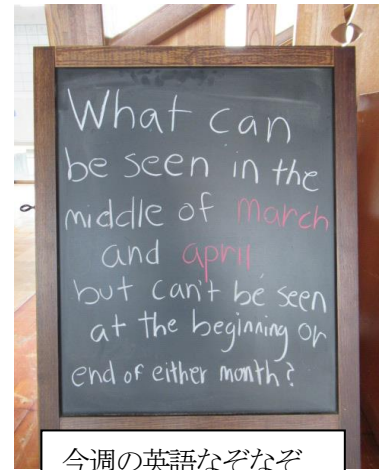 What can
be seen in the
middle of March
and april
but can't be seen
at the beginning or
end of either month?
今週の英語なぞなぞ